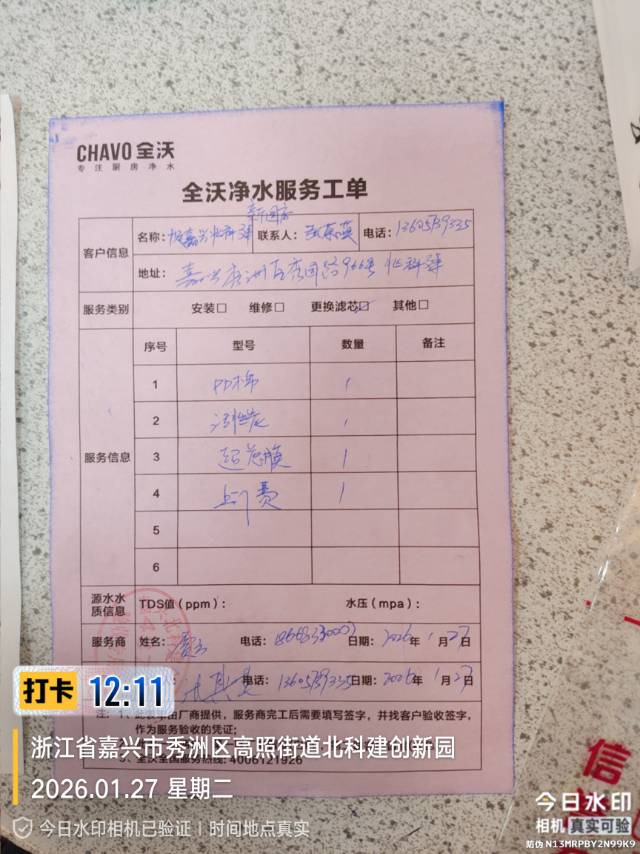 CHAVO 全沃
专注厨房净水
全沃净水服务工单
客户信息
名称： 嘉兴北科建 联系人： 电话：
地址： 嘉兴秀洲区秀园路966号 北科建
服务类别 安装□ 维修□ 更换滤芯☑ 其他□
服务信息
序号 型号 数量 备注
1 PP棉 1
2 活性炭 1
3 超滤膜 1
4 上门费 1
5
6
源水水质信息 TDS值（ppm）： 水压（mpa）：
服务商 姓名： 电话： 日期：2026年1月27日
电话： 日期：2026年1月27日
注：1、此表单由厂商提供，服务商完工后需要填写签字，并找客户验收签字，
作为服务验收的凭证；
全沃全国服务热线：4006121926
打卡 12:11
浙江省嘉兴市秀洲区高照街道北科建创新园
2026.01.27 星期二
今日水印相机已验证 | 时间地点真实
信
今日水印
相机 真实可验
防伪 N13MRPBY2N99K9